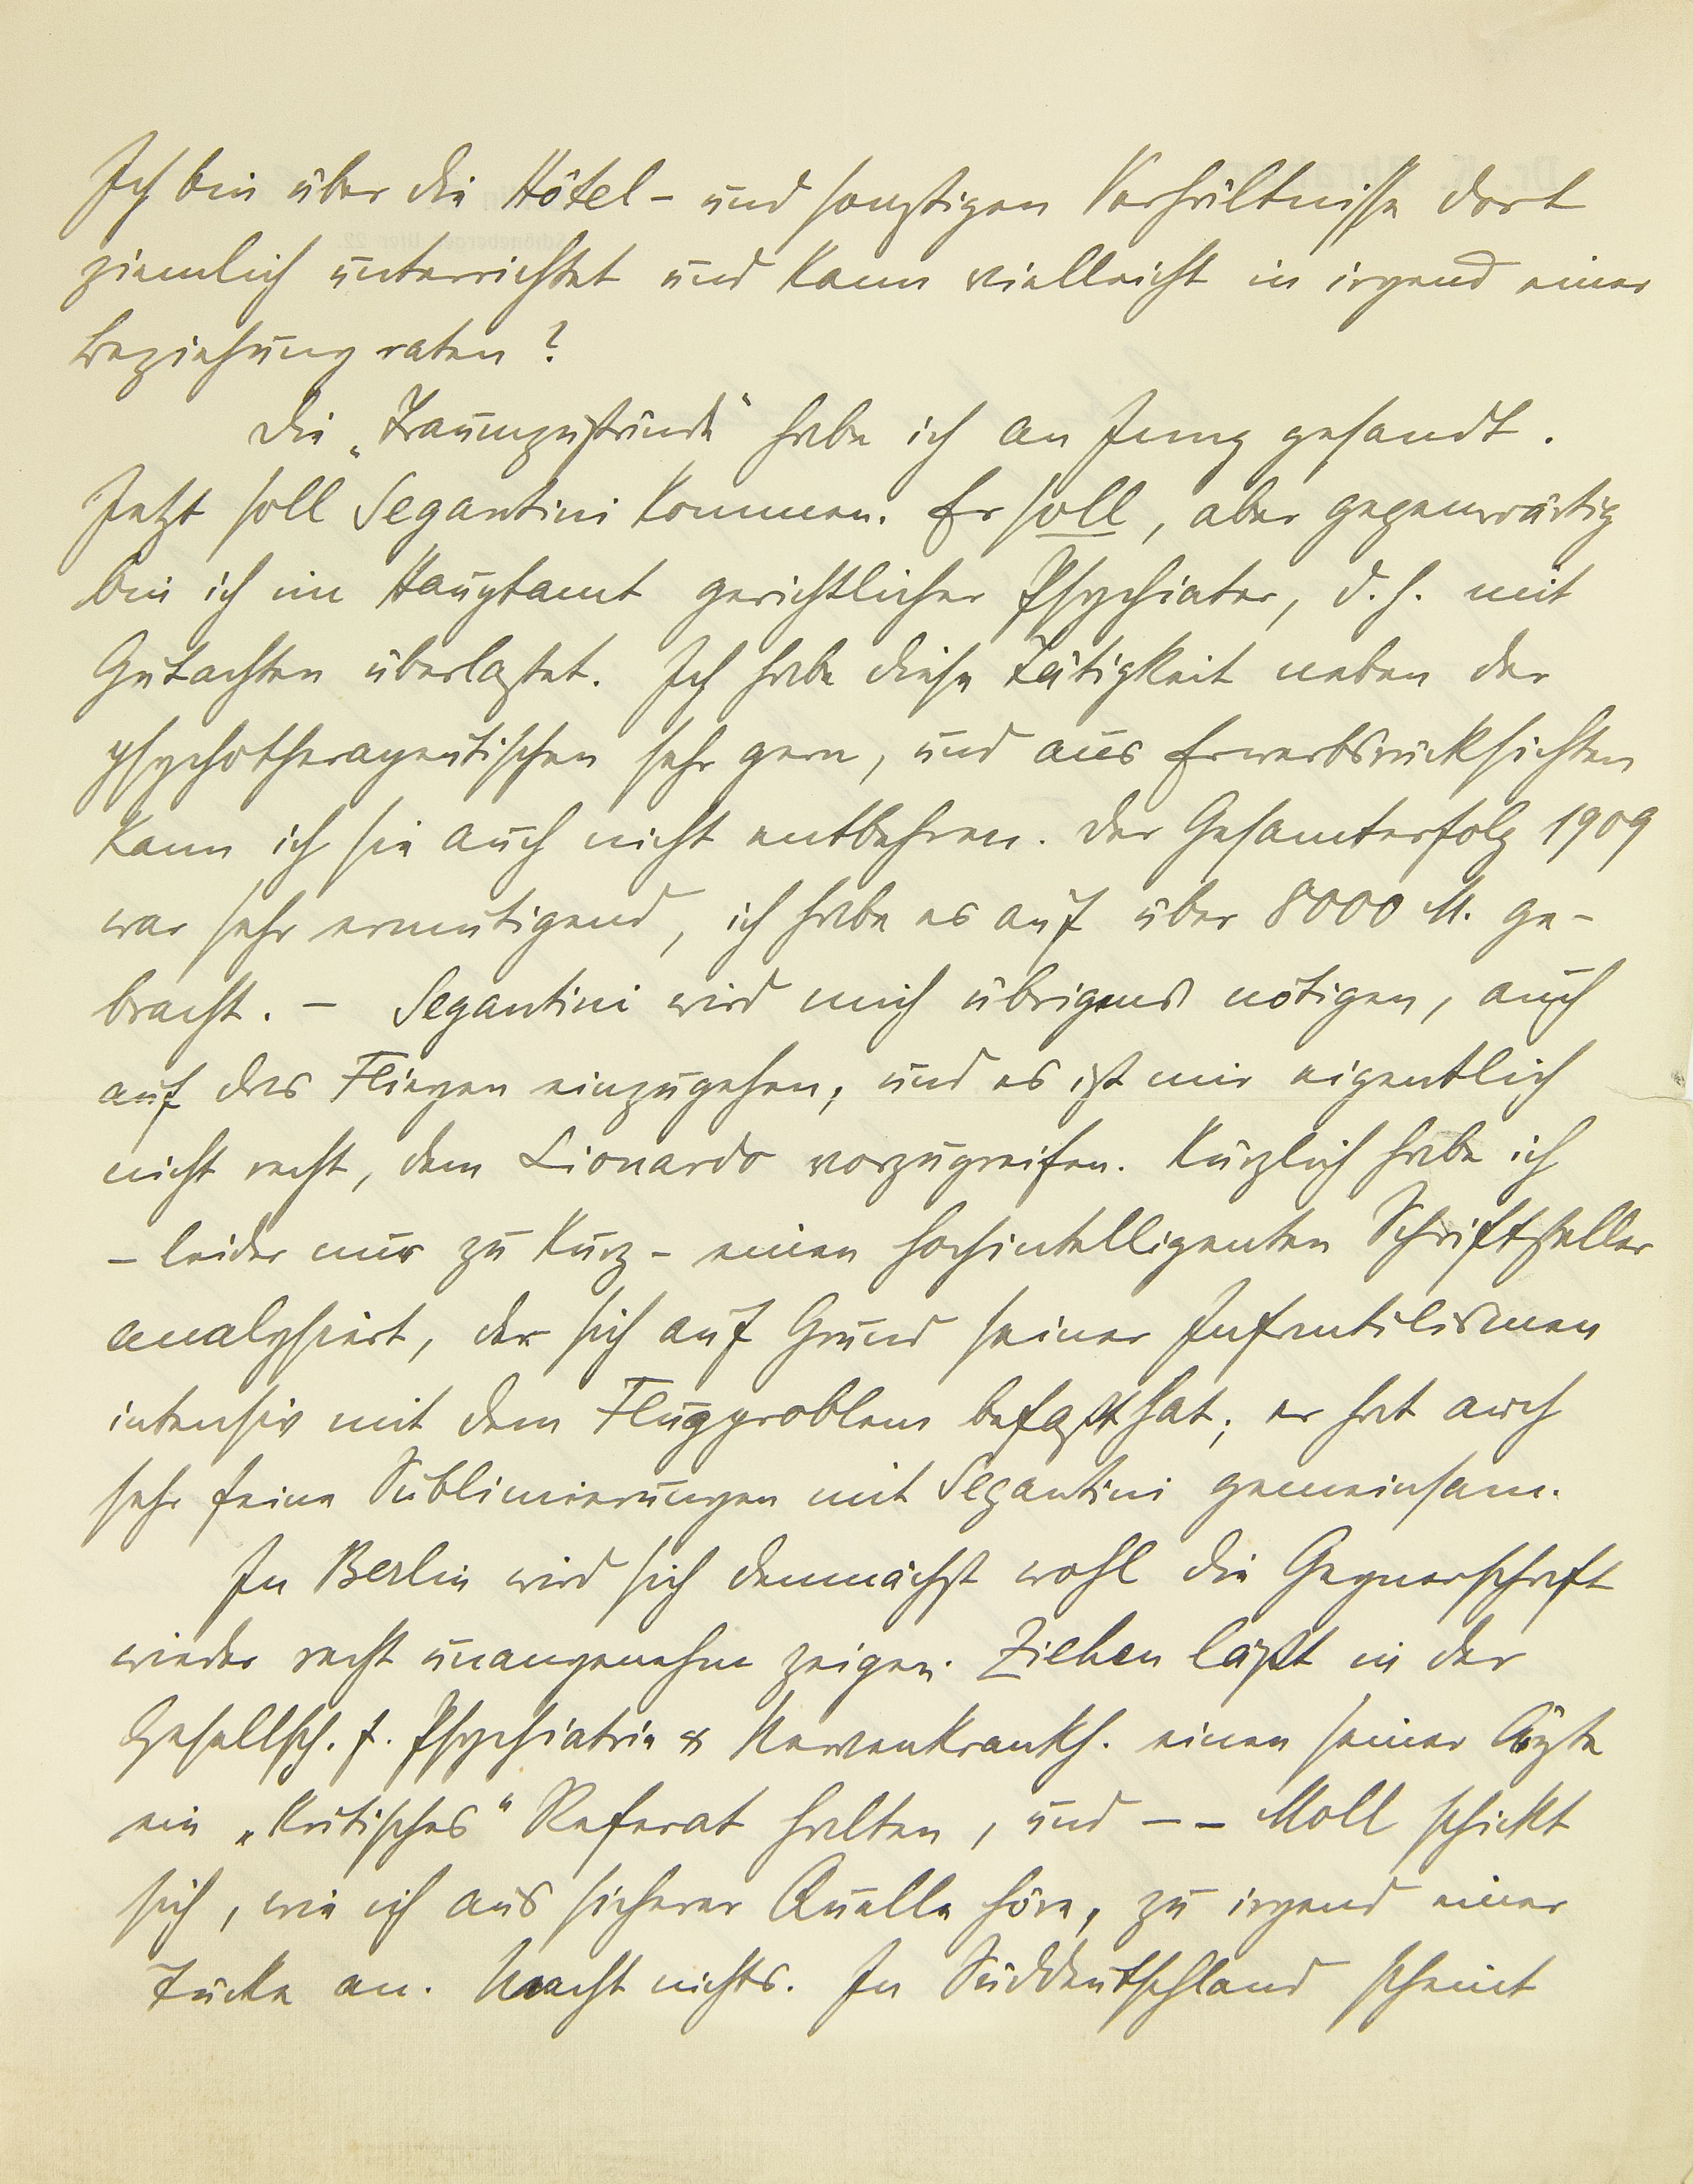 Ich bin über die Hôtel- und sonstigen Verhältnisse dort
ziemlich unterrichtet und kann vielleicht in irgend einer
Beziehung raten?
Die „Traumzustände“ habe ich an Jung gesandt.
Jetzt soll Segantini kommen. Er soll, aber gegenwärtig
bin ich im Hauptamt gerichtlicher Psychiater, d. h. mit
Gutachten überlastet. Ich habe diese Tätigkeit neben der
psychotherapeutischen sehr gern, und aus Erwerbsrücksichten
kann ich sie auch nicht entbehren. Der Gesamterfolg 1909
war sehr ermutigend, ich habe es auf über 8000 M. ge-
bracht. – Segantini wird mich übrigens nötigen, auch
auf das Fliegen einzugehen, und es ist mir eigentlich
nicht recht, dem Lionardo vorzugreifen. Kürzlich habe ich
– leider nur zu kurz – einen hochintelligenten Schriftsteller
analysiert, der sich auf Grund seiner Infantilismen
intensiv mit dem Flugproblem befaßt hat; er hat auch
sehr feine Sublimierungen mit Segantini gemeinsam.
In Berlin wird sich demnächst wohl die Gegnerschaft
wieder recht unangenehm zeigen. Ziehen läßt in der
Gesellsch. f. Psychiatrie & Nervenkrankh. einen seiner Ärzte
ein „kritisches“ Referat halten, und – – Moll schickt
sich, wie ich aus sicherer Quelle höre, zu irgend einer
Tücke an. Macht nichts. In Süddeutschland scheint